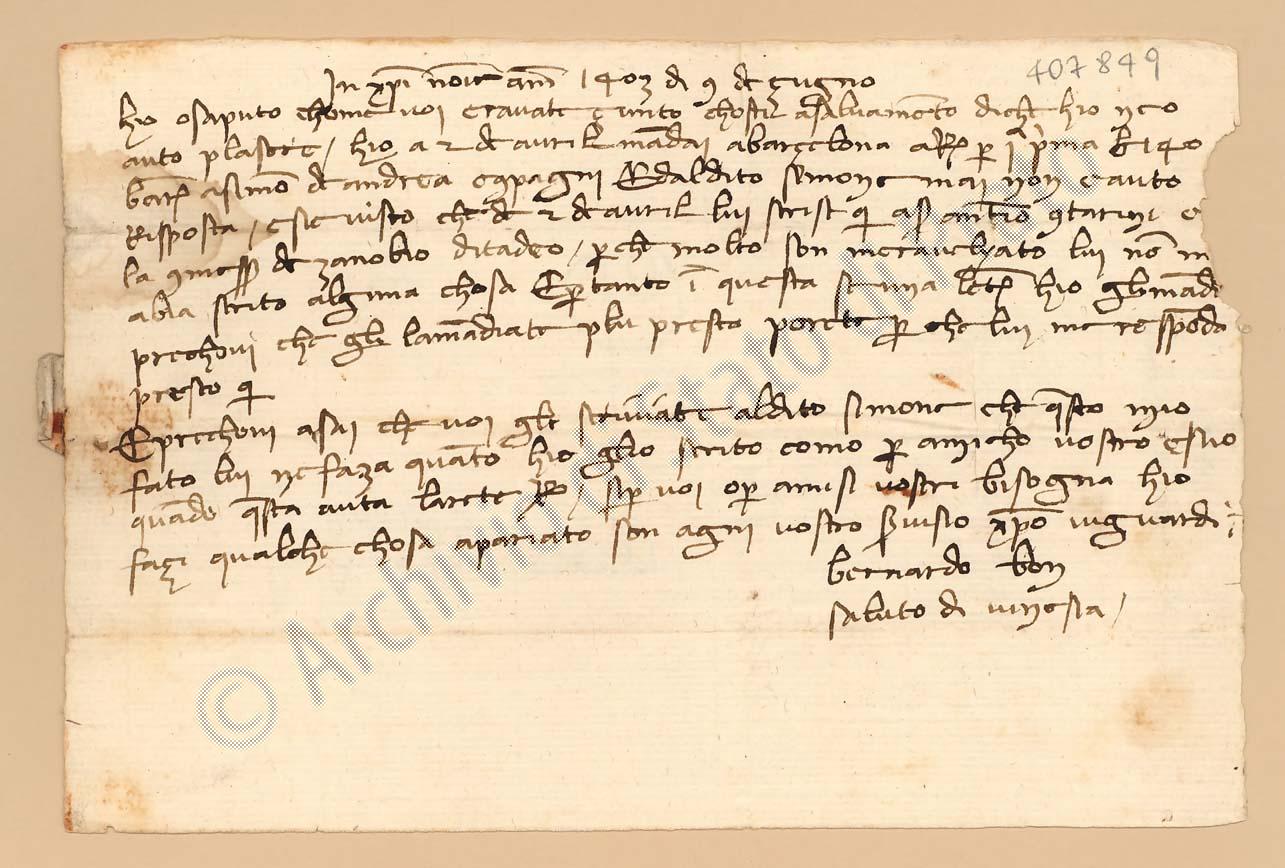 407849
In xpi nome am 1403 di 9 de zugno
hio o saputo chome voi eravate zunto chosti a salvamento diche hio n eo
auto plasere / hio a 2 de avril mandai a barzelona a per prima
a simo de andrea e conpagni E dal dito simone mai non e auto
Risposta / e sie visto che de 2 de avril lui scrise qi
la de zanobio di tadeo / per che molto son meravelyato lui no m
abia scrito alguna chosa E per tanto i questa letra hio gli mando
prechovi che gli la mandiate plu presto porete per che lui me responda
presto qi
E prechovi asai che voi gli scriviate al dito simone che questo mio
fato lui ne faza quanto hio gli o scrito como per amicho vostro e suo
quando questa auta l arete / si per voi o per amisi vostri bisogna hio
fazi qualche chosa apariato son a gni vostro servisio xpo vi guardi
bernardo bon
saluto di vinesia /
© Archivio di Stato di Prato